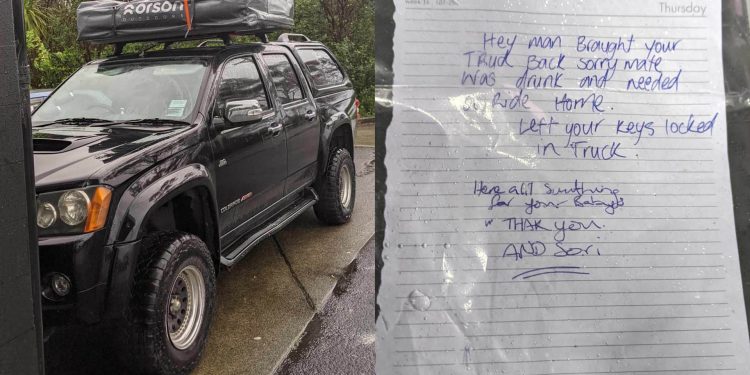 orson
OUTDOORS
COLORADO
Thursday
Hey man Braught your
Truck Back sorry mate
Was drunk and needed
a Ride Home.
Left your Keys locked
in Truck.
Here a lil Sumthing
for your
THAK you.
AND Sori